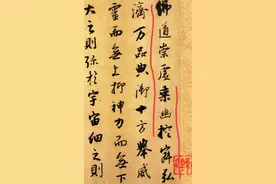 佛道崇虛乘幽控寂弘
濟万品典御十方舉威
靈而無上抑神力而無下
大之則弥於宇宙細之則